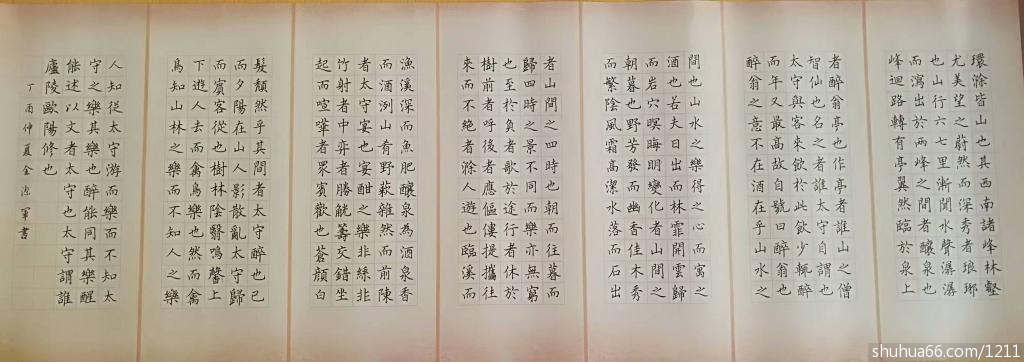 環滁皆山也其西南諸峰林壑
尤美望之蔚然而深秀者琅琊
也山行六七里漸聞水聲潺潺
而瀉出於兩峰之間者釀泉也
峰迴路轉有亭翼然臨於泉上
者醉翁亭也作亭者誰山之僧
智仙也名之者誰太守自謂也
太守與客來飲於此飲少輒醉
而年又最高故自號曰醉翁也
醉翁之意不在酒在乎山水之
間也山水之樂得之心而寓之
酒也若夫日出而林霏開雲歸
而岩穴暝晦明變化者山間之
朝暮也野芳發而幽香佳木秀
而繁陰風霜高潔水落而石出
者山間之四時也朝而往暮而
歸四時之景不同而樂亦無窮
也至於負者歌於途行者休於
樹前者呼後者應傴僂提攜往
來而不絕者滁人遊也臨溪而
漁溪深而魚肥釀泉為酒泉香
而酒洌山肴野蔌雜然而前陳
者太守宴也宴酣之樂非絲非
竹射者中弈者勝觥籌交錯坐
起而喧嘩者眾賓歡也蒼顏白
髮頹然乎其間者太守醉也已
而夕陽在山人影散亂太守歸
而賓客從也樹林陰翳鳴聲上
下遊人去而禽鳥樂也然而禽
鳥知山林之樂而不知人之樂
人知從太守游而樂而不知太
守之樂其樂也醉能同其樂醒
能述以文者太守也太守謂誰
廬陵歐陽修也
丁酉仲夏金軍書
shuhua66.com/1211